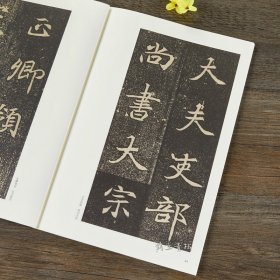 大夫吏部
尚書大宗
正卿領